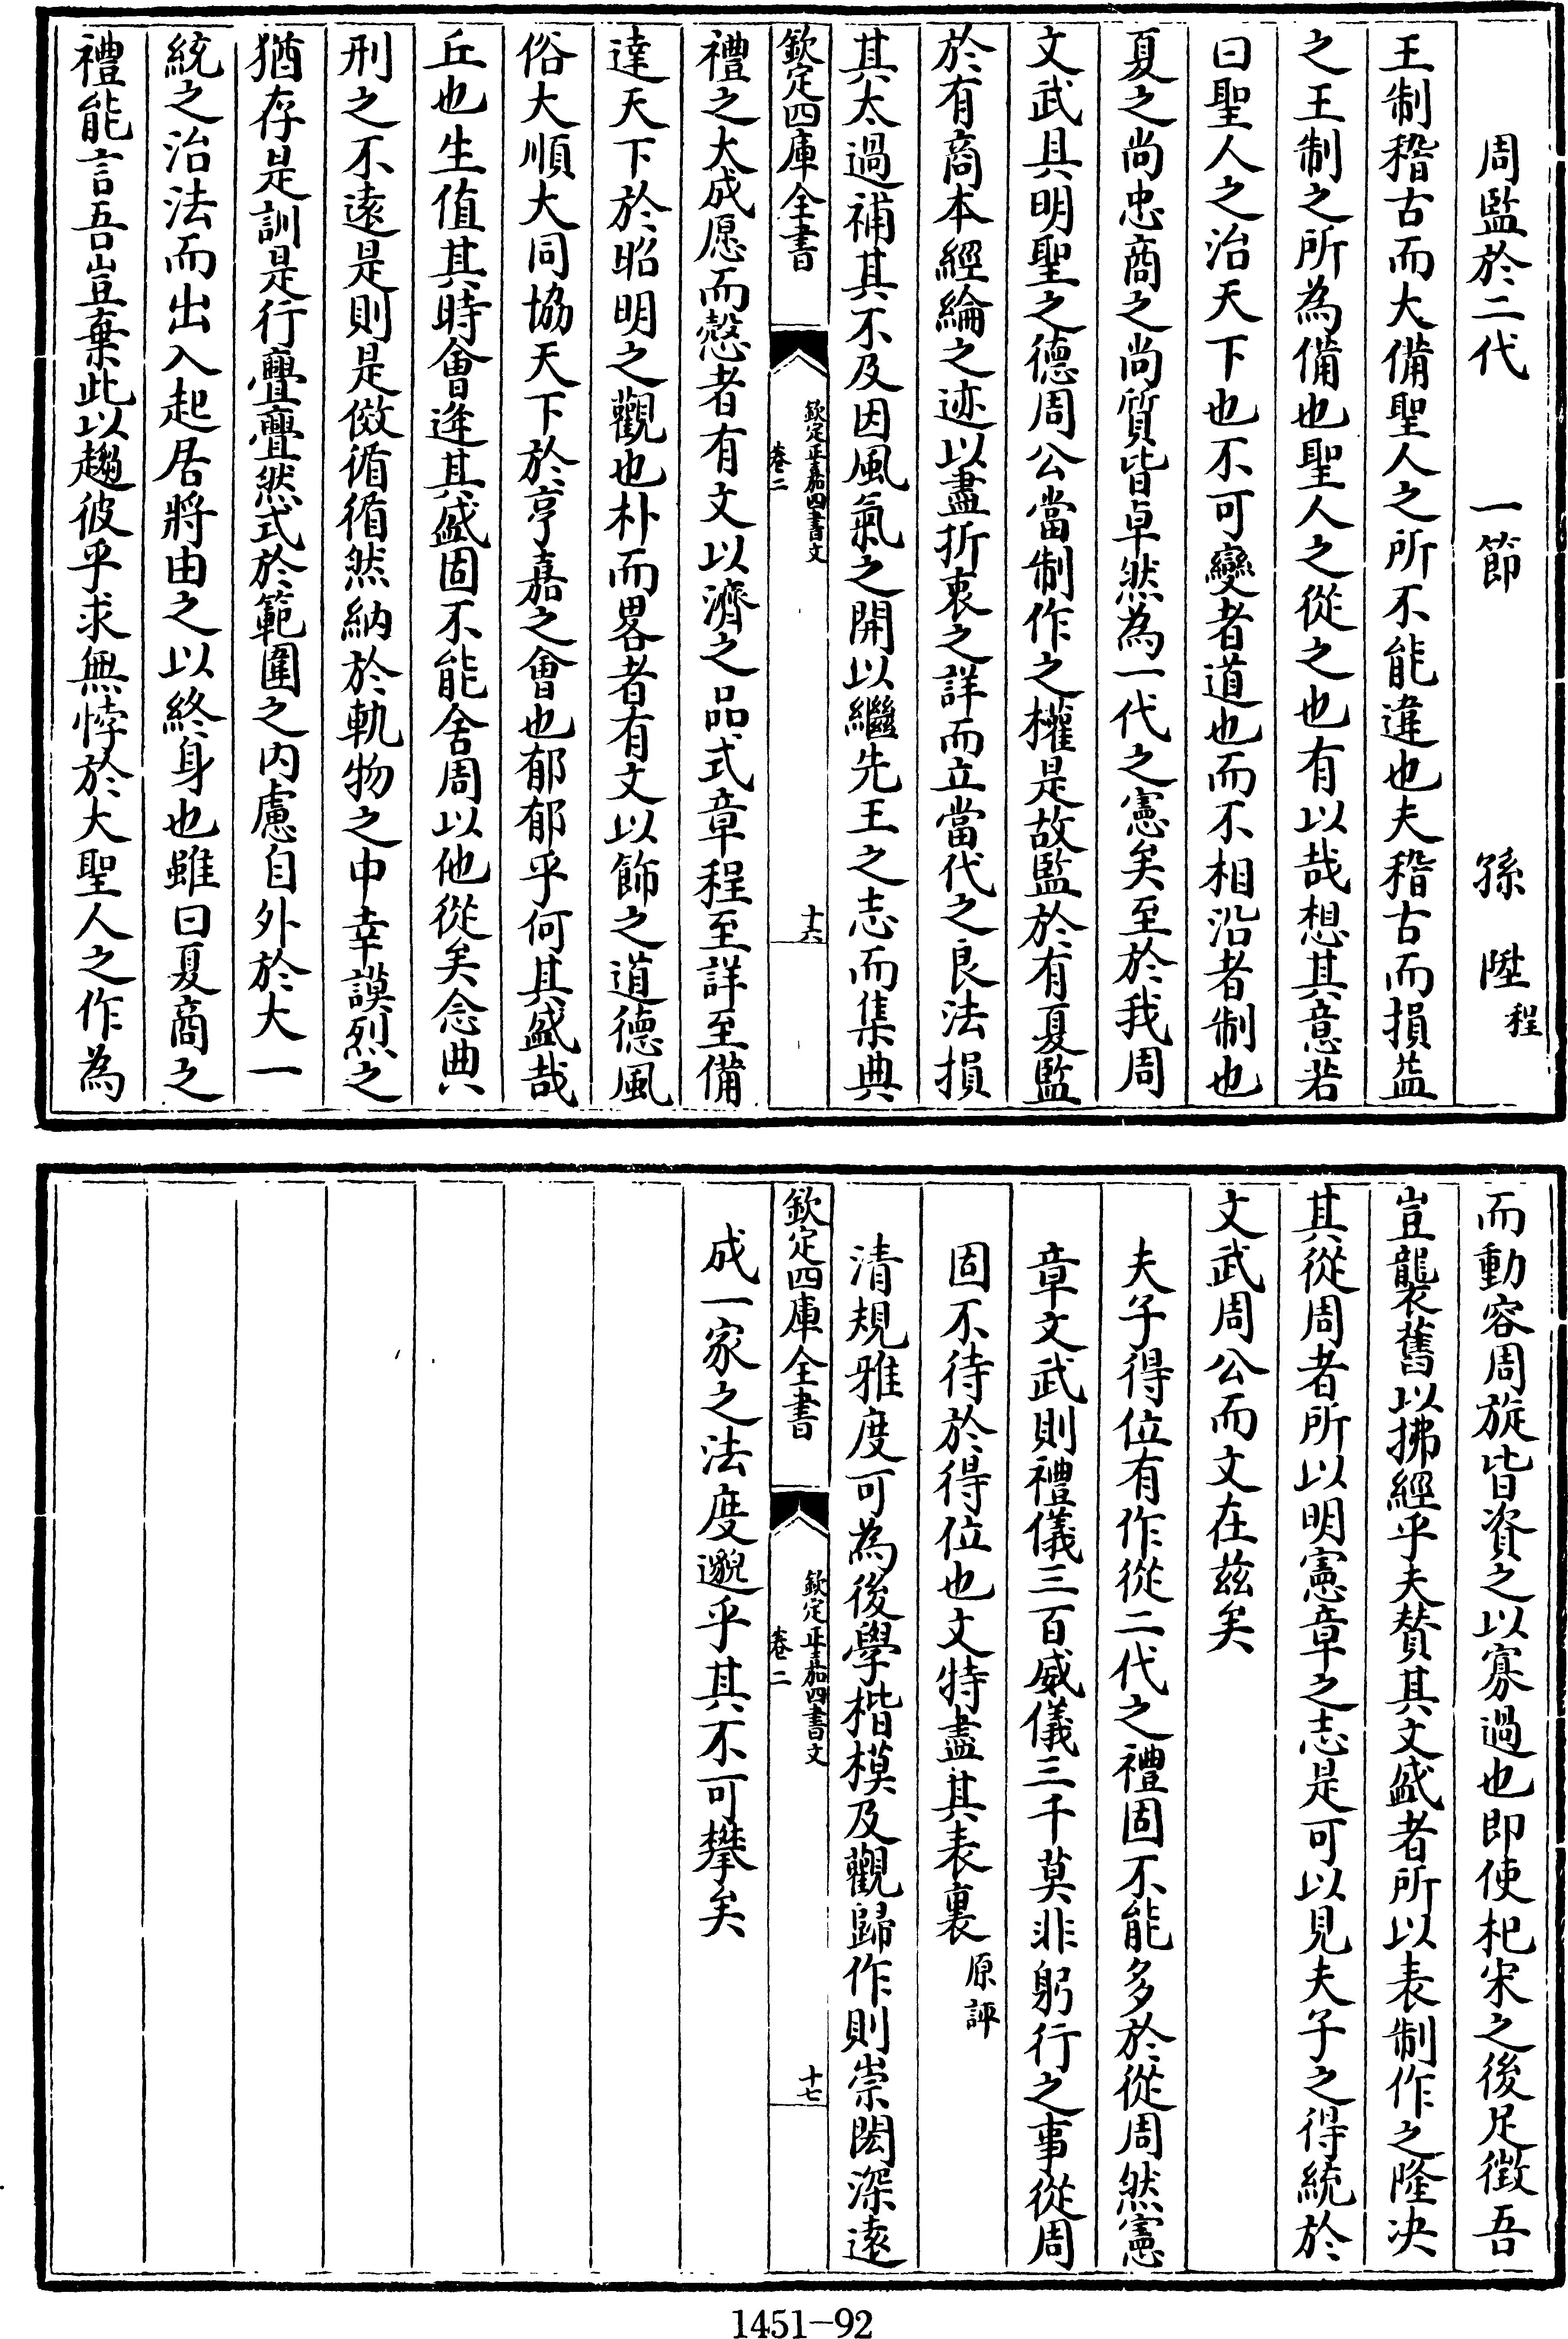 周監於二代　一節　孫陞程
王制稽古而大備聖人之所不能違也夫稽古而損益
之王制之所為備也聖人之從之也有以哉想其意若
曰聖人之治天下也不可變者道也而不相沿者制也
夏之尚忠商之尚質皆卓然為一代之憲矣至於我周
文武具明聖之德周公當制作之權是故監於有夏監
於有商本經綸之迹以盡折衷之詳而立當代之良法損
其太過補其不及因風氣之開以繼先王之志而集典
欽定四庫全書
欽定正嘉四書文
卷二
十六
禮之大成愿而慤者有文以濟之品式章程至詳至備
達天下於昭明之觀也朴而畧者有文以飾之道德風
俗大順大同協天下於亨嘉之會也郁郁乎何其盛哉
丘也生值其時會逢其盛固不能舍周以他從矣念典
刑之不遠是則是傚循循然納於軌物之中幸謨烈之
猶存是訓是行亹亹然式於範圍之內慮自外於大一
統之治法而出入起居將由之以終身也雖曰夏商之
禮能言吾豈棄此以趨彼乎求無悖於大聖人之作為
而動容周旋皆資之以寡過也即使杞宋之後足徵吾
豈襲舊以拂經乎夫贊其文盛者所以表制作之隆决
其從周者所以明憲章之志是可以見夫子之得統於
文武周公而文在兹矣
夫子得位有作從二代之禮固不能多於從周然憲
章文武則禮儀三百威儀三千莫非躬行之事從周
固不待於得位也文特盡其表裏原評
清規雅度可為後學楷模及觀歸作則崇閎深遠
欽定四庫全書
欽定正嘉四書文
卷二
十七
成一家之法度邈乎其不可攀矣
1451-92